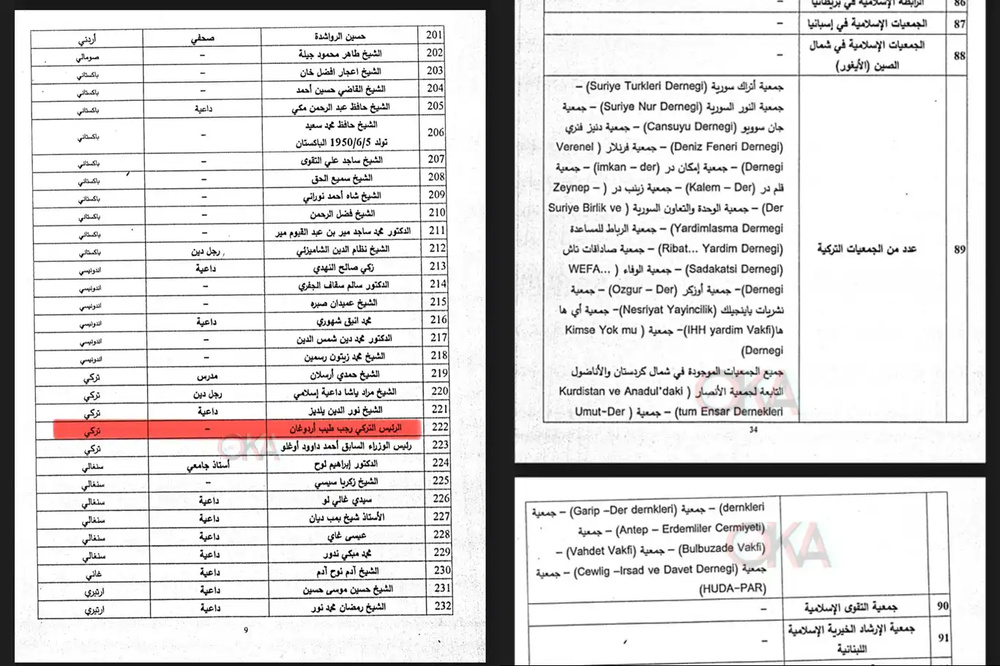 201 حسين الرواشدة صحفي أردني
202 الشيخ طاهر محمود جيلة – صومالي
203 الشيخ اعجار افضل خان – باكستاني
204 الشيخ القاضي حسين أحمد – باكستاني
205 الشيخ حافظ عبد الرحمن مكي داعية باكستاني
206 الشيخ حافظ محمد سعيد – باكستاني
تولد 1950/6/5 الباكستان
207 الشيخ ساجد علي التقوى – باكستاني
208 الشيخ سميع الحق – باكستاني
209 الشيخ شاه أحمد نوراني – باكستاني
210 الشيخ فضل الرحمن – باكستاني
211 الدكتور محمد ساجد مير بن عبد القيوم مير – باكستاني
212 الشيخ نظام الدين الشاميزئي رجل دين باكستاني
213 زكي صالح النهدي داعية اندونيسي
214 الدكتور سالم سقاف الجفري – اندونيسي
215 الشيخ عميدان صبره – اندونيسي
216 محمد انيق شهوري داعية اندونيسي
217 الدكتور محمد دين شمس الدين – اندونيسي
218 الشيخ محمد زيتون رسمين – اندونيسي
219 الشيخ حمدي أرسلان مدرس تركي
220 الشيخ مراد ياشا داعية إسلامي رجل دين تركي
221 الشيخ نور الدين يلديز داعية تركي
222 الرئيس التركي رجب طيب أردوغان – تركي
223 رئيس الوزراء السابق أحمد داوود أوغلو تركي
224 الدكتور إبراهيم لوح أستاذ جامعي سنغالي
225 الشيخ زكريا سيسي – سنغالي
226 سيدي غالي لو داعية سنغالي
227 الأستاذ شيخ بمب ديان داعية سنغالي
228 عيسى غاي داعية سنغالي
229 محمد مبكي ندور داعية سنغالي
230 الشيخ آدم نوح آدم داعية غاني
231 الشيخ حسين موسى حسين داعية ارتيري
232 الشيخ رمضان محمد نور داعية ارتيري
9
OKA
86 الرابطة الإسلامية في بريطانيا –
87 الجمعيات الإسلامية في إسبانيا –
88 الجمعيات الإسلامية في شمال –
الصين (الأيغور)
89 عدد من الجمعيات التركية
جمعية أتراك سورية (Suriye Turkleri Dernegi) –
جمعية النور السورية (Suriye Nur Dernegi) – جمعية
جان سوويو (Cansuyu Dernegi) – جمعية دنيز فنري
(Deniz Feneri Dernegi) – جمعية فرنلار ( Verenel
Dernegi) – جمعية إمكان در (imkan – der) – جمعية
قلم در (Kalem – Der) – جمعية زينب در ( – Zeynep
Der) – جمعية الوحدة والتعاون السورية ( Suriye Birlik ve
Yardimlasma Dermegi) – جمعية الرباط للمساعدة
(Ribat... Yardim Dernegi) – جمعية صاداقات تاش
(Sadakatsi Dernegi) – جمعية الوفاء ( WEFA...
Dernegi) – جمعية أوزكر (Ozgur – Der) – جمعية
نشريات ياينجيلك (Nesriyat Yayincilik) – جمعية أي ها
ها (IHH yardim Vakfi) – جمعية ( Kimse Yok mu
Dernegi)
جميع الجمعيات الموجودة في شمال كردستان والأناضول
التابعة لجمعية الأنصار ( Kurdistan ve Anadul'daki
tum Ensar Dernekleri) – جمعية ( Umut-Der
34
OKA
dernkleri) – جمعية (Garip –Der dernkleri) – جمعية
(Antep – Erdemliler Cermiyeti) – جمعية
(Bulbuzade Vakfi) – جمعية (Vahdet Vakfi) –
جمعية (Cewlig –Irsad ve Davet Dernegi) – جمعية
(HUDA-PAR)
90 جمعية التقوى الإسلامية –
91 جمعية الإرشاد الخيرية الإسلامية –
اللبنانية
OKA